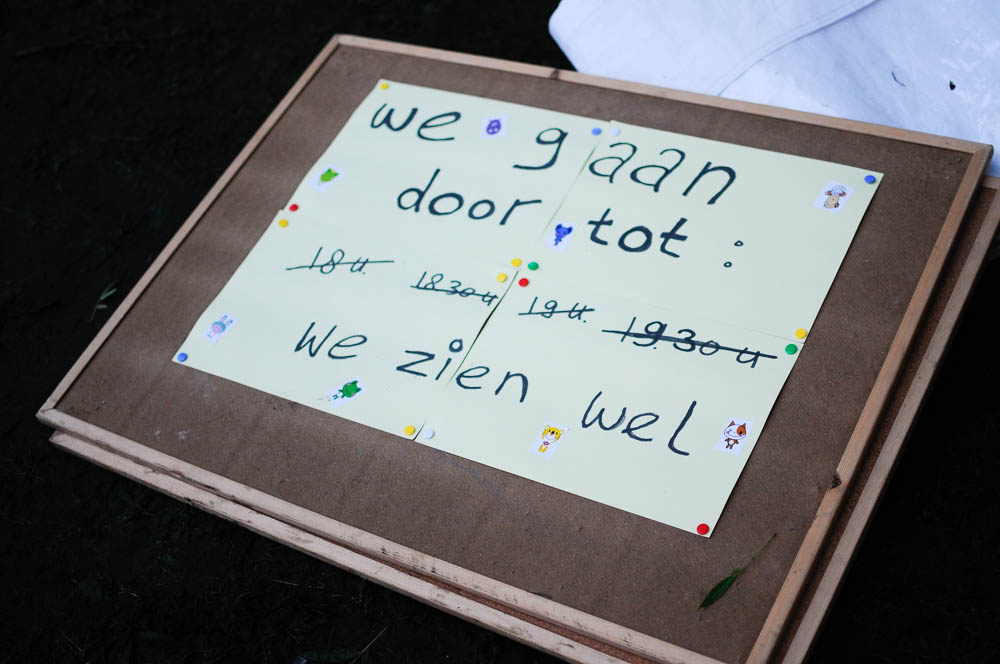 we gaan
door tot :
18 u. 18.30 u 19 u. 19.30 u
We zien wel